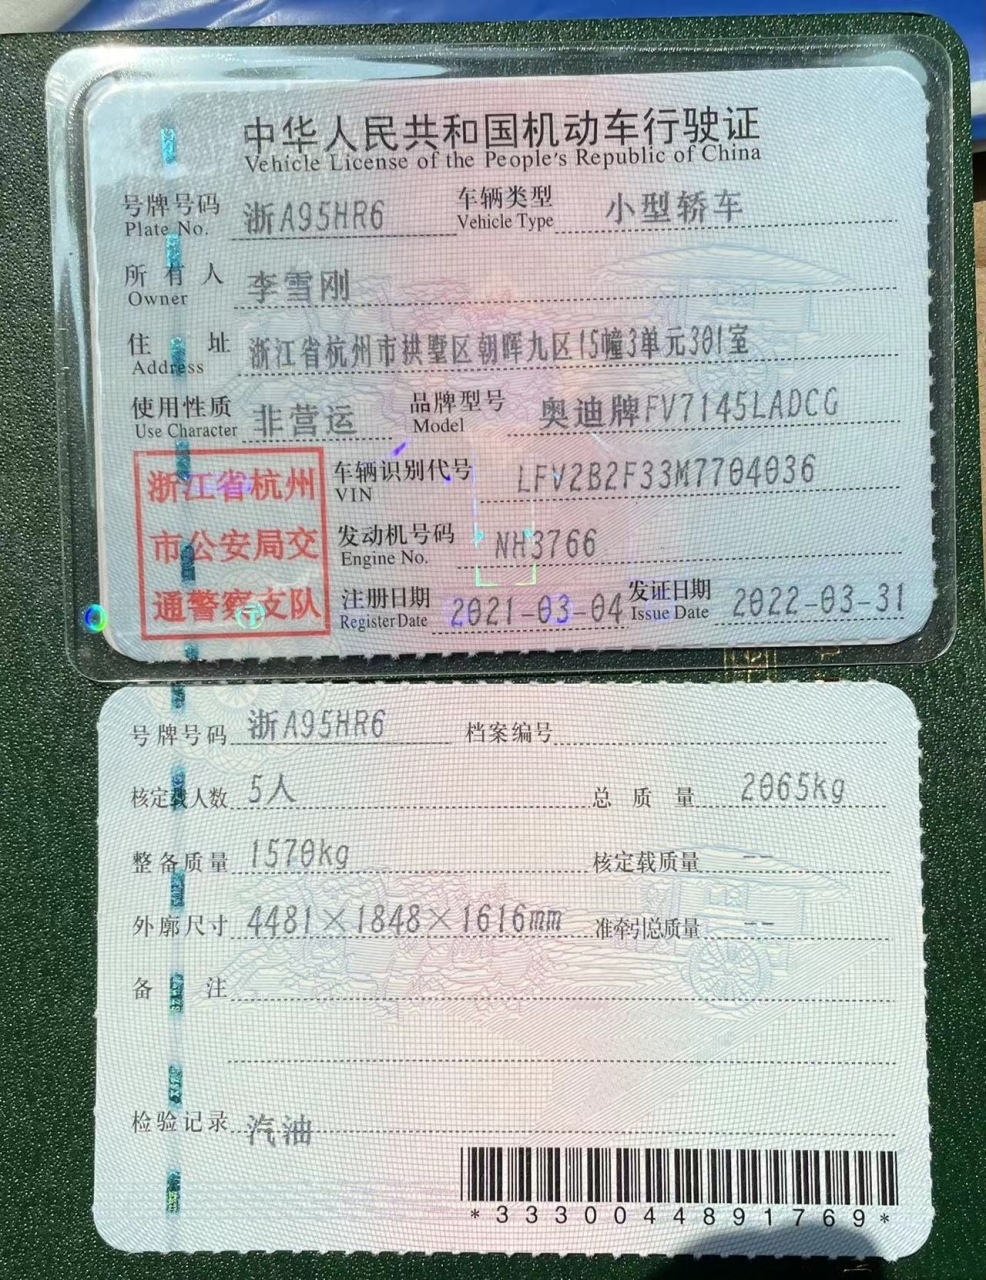 中华人民共和国机动车行驶证
Vehicle License of the People's Republic of China
号牌号码 浙A95HR6 车辆类型 小型轿车
Plate No. Vehicle Type
所有人 李雪刚
Owner
住址 浙江省杭州市拱墅区朝晖九区15幢3单元301室
Address
使用性质 非营运 品牌型号 奥迪牌FV7145LADCG
Use Character Model
浙江省杭州
市公安局交
通警察支队
车辆识别代号 LFV2B2F33M7704036
VIN
发动机号码 NH3766
Engine No.
注册日期 2021-03-04 发证日期 2022-03-31
Register Date Issue Date
号牌号码 浙A95HR6 档案编号
核定载人数 5人 总质量 2065kg
整备质量 1570kg 核定载质量 --
外廓尺寸 4481×1848×1616mm 准牵引总质量 --
备注
检验记录 汽油
*3330044891769*